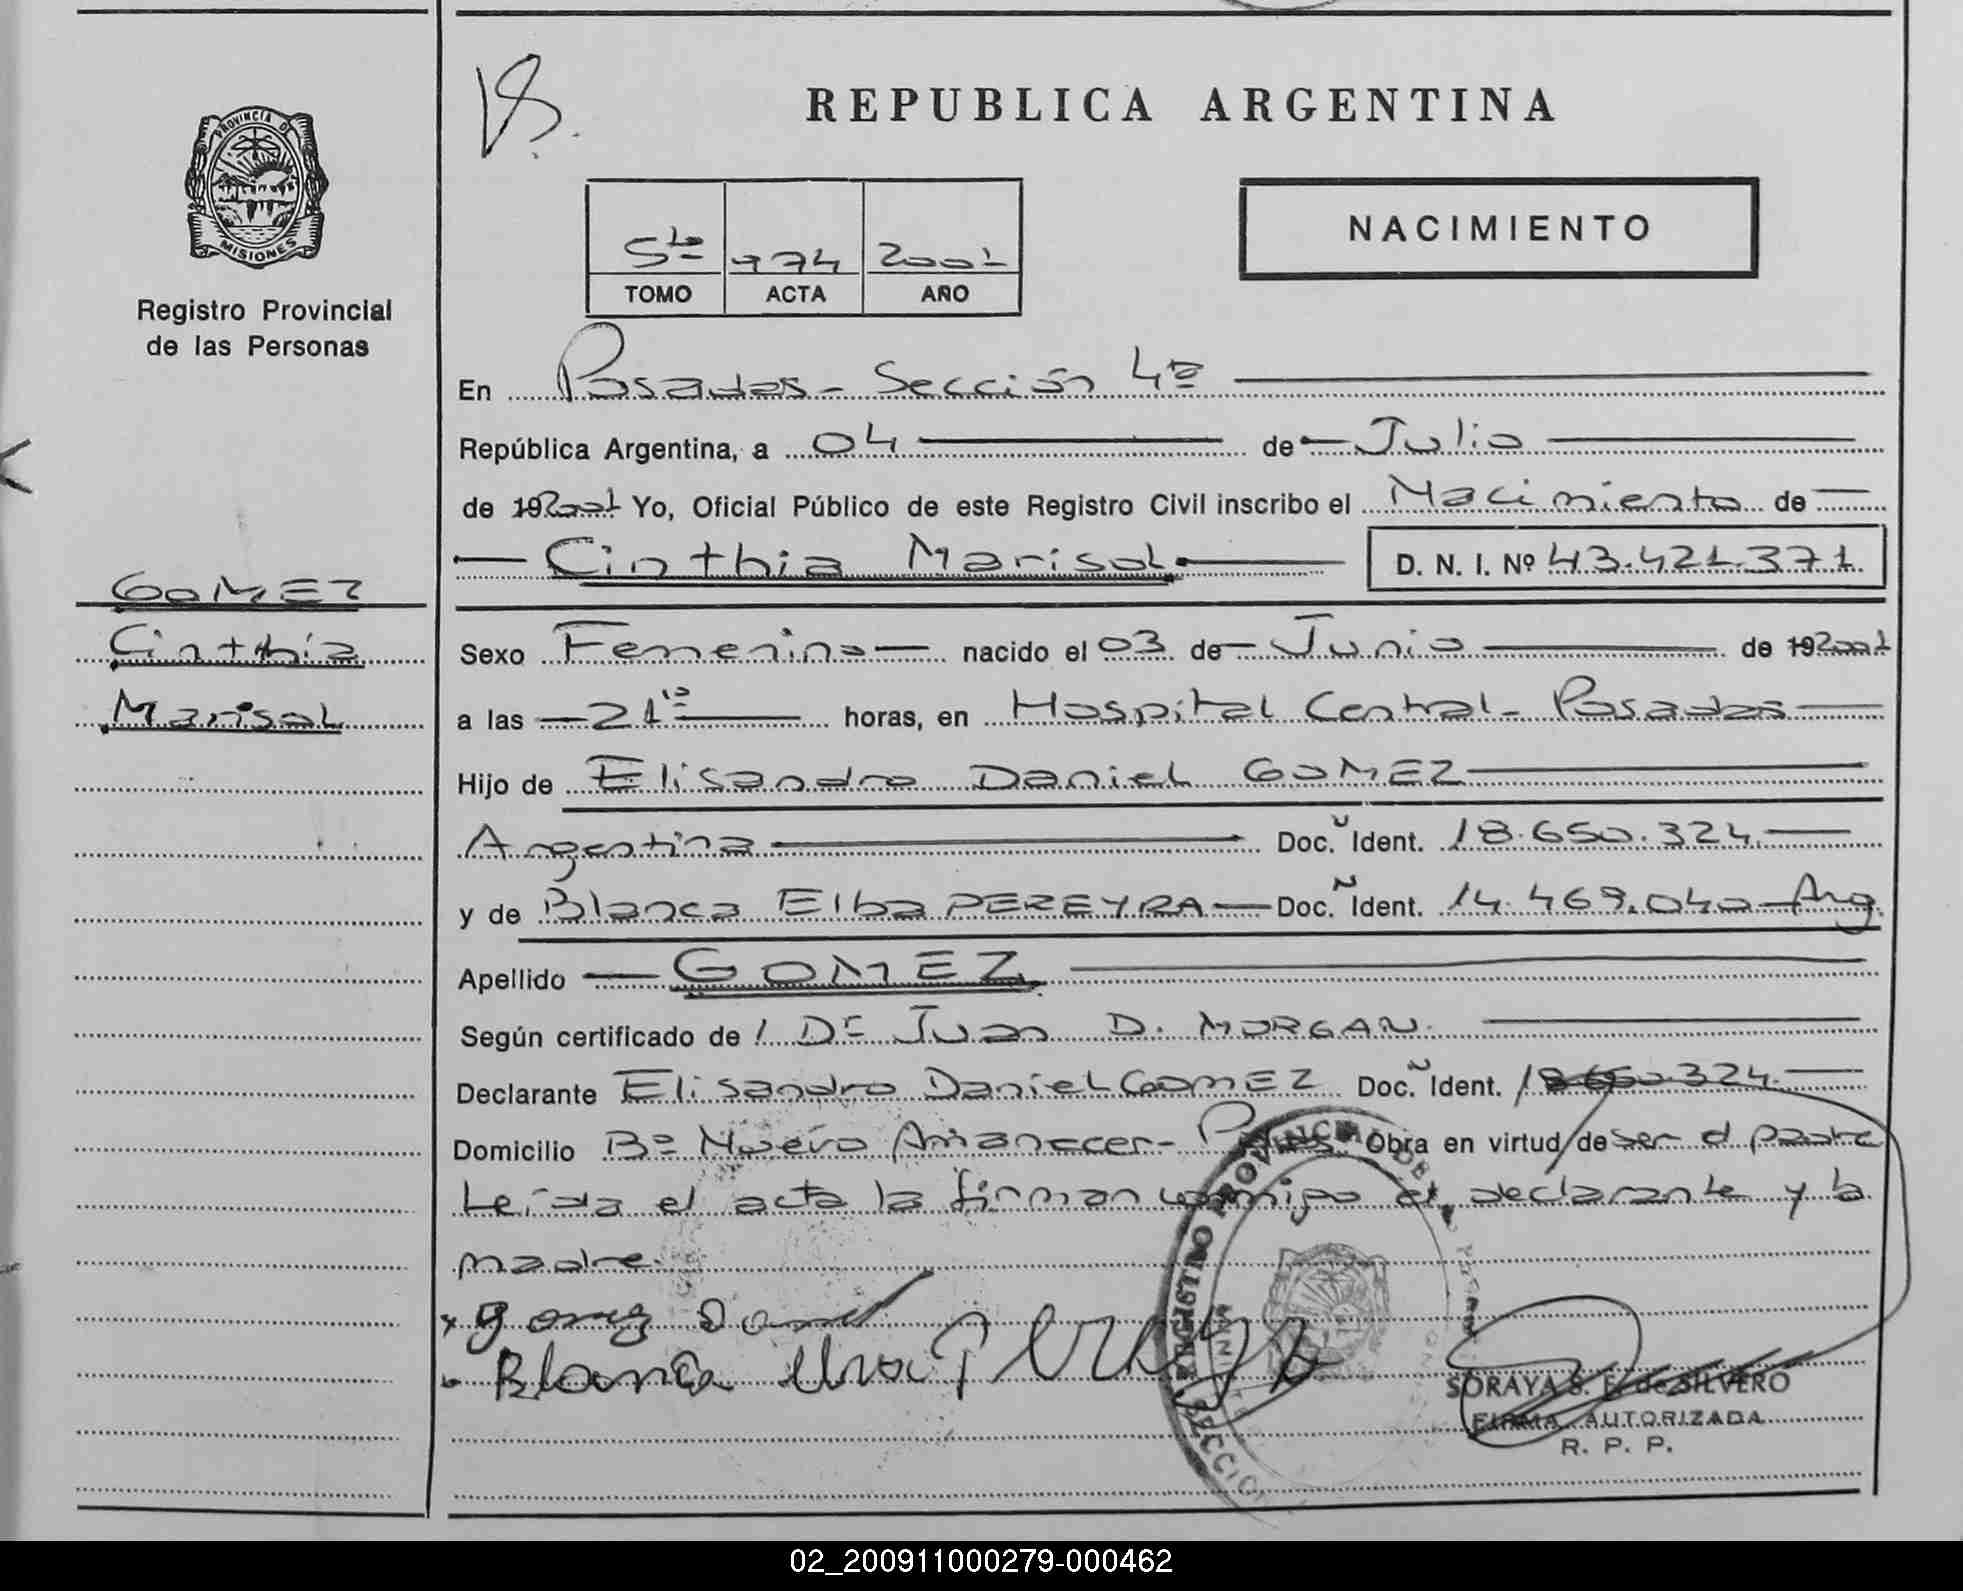 REPUBLICA ARGENTINA
PROVINCIA DE
MISIONES
Registro Provincial
de las Personas
5to 974 2001
TOMO ACTA AÑO
NACIMIENTO
En Posadas - Sección 4ta
República Argentina, a 04 de Julio
de 192001 Yo, Oficial Público de este Registro Civil inscribo el Nacimiento de
Cinthia Marisol D. N. I. Nº 43.421.371
GOMEZ
Cinthia
Marisol
Sexo Femenino nacido el 03 de Junio de 192001
a las 21 horas, en Hospital Central - Posadas
Hijo de Elisandro Daniel GOMEZ
Argentina Doc. Ident. 18.650.324
y de Blanca Elba PEREYRA Doc. Ident. 14.469.040 - Arg.
Apellido GOMEZ
Según certificado de Dr Juan D. MORGAN.
Declarante Elisandro Daniel GOMEZ Doc. Ident. 18.650.324
Domicilio Bº Nuevo Amanecer - Obra en virtud de ser el padre
Leída el acta la firman conmigo el declarante y la
madre.
gomez Daniel
Blanca Pereyra
REGISTRO PROVINCIAL DE
SECCION
SORAYA S. E. de SILVERO
FIRMA AUTORIZADA
R. P. P.
02_200911000279-000462